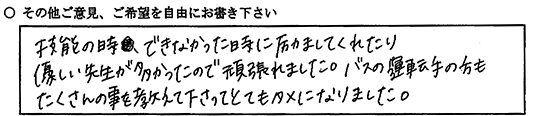 ○ その他ご意見、ご希望を自由にお書き下さい
技能の時、できなかった時に励ましてくれたり
優しい先生が多かったので頑張れました。バスの運転手の方も
たくさんの事を教えて下さってとてもタメになりました。